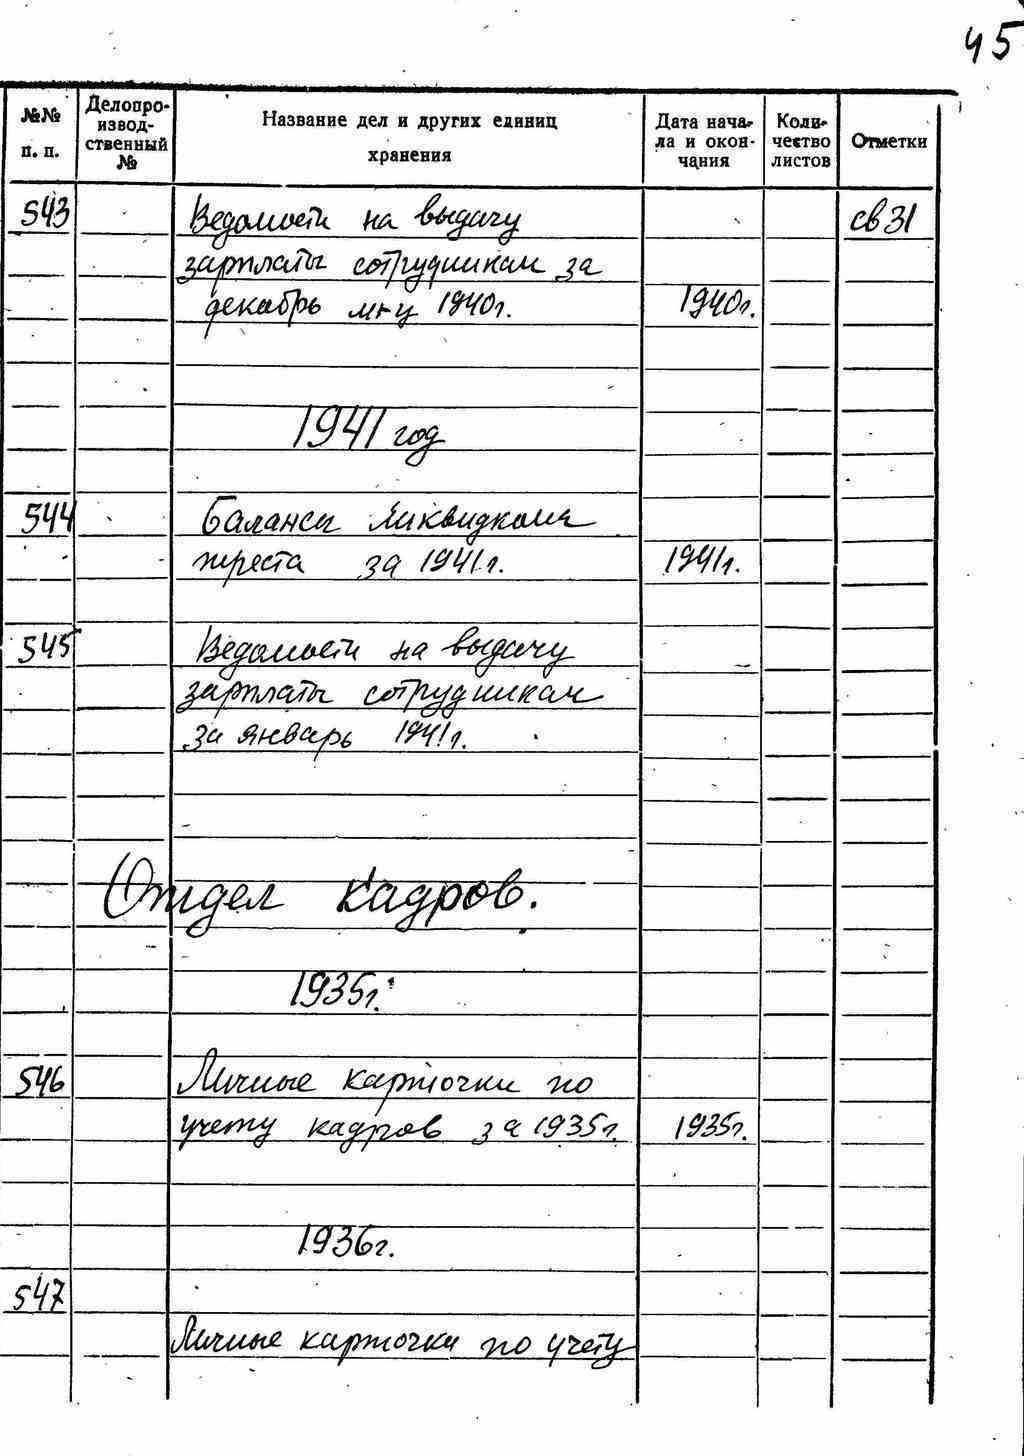 45
№№ п. п. Делопроизводственный № Название дел и других единиц хранения Дата начала и окончания Количество листов Отметки
543 Ведомости на выдачу св 31
зарплаты сотрудникам за
декабрь м-ц 1940г. 1940г.
1941 год
544 Балансы Ликвидкома
треста за 1941г. 1941г.
545 Ведомости на выдачу
зарплаты сотрудникам
за январь 1941г.
Отдел кадров.
1935г.
546 Личные карточки по
учету кадров за 1935г. 1935г.
1936г.
547
Личные карточки по учету